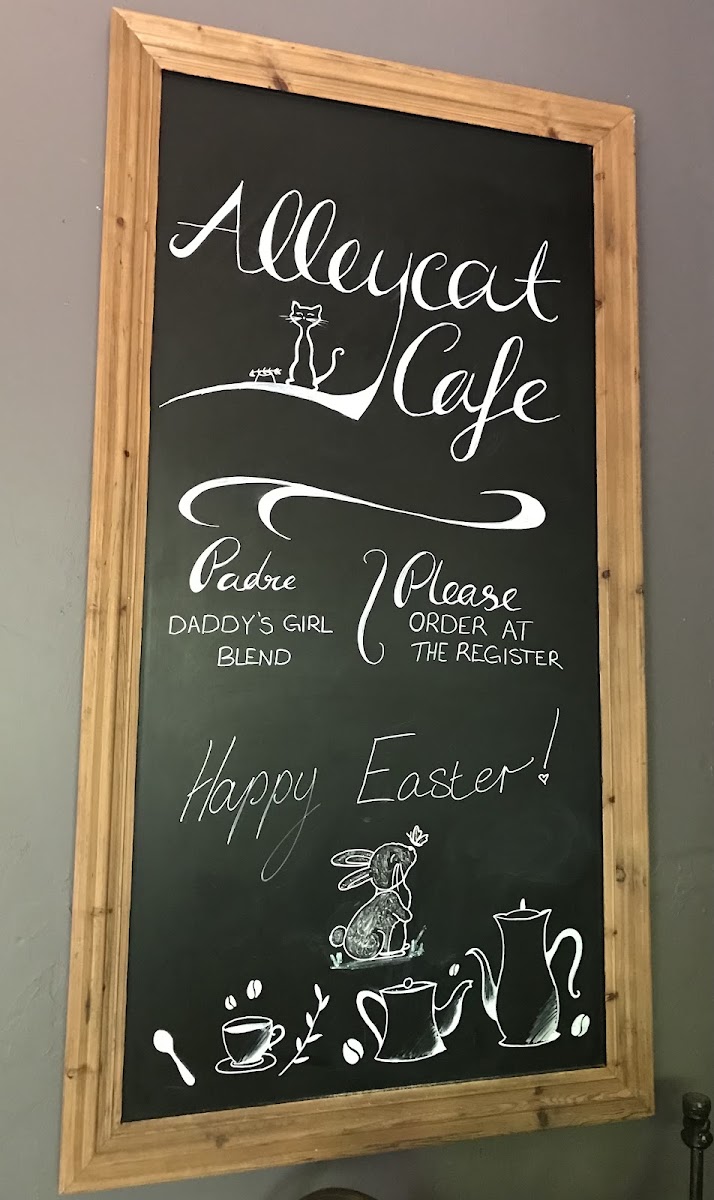 Alleycat
Cafe
Padre
DADDY'S GIRL
BLEND
Please
ORDER AT
THE REGISTER
Happy Easter!